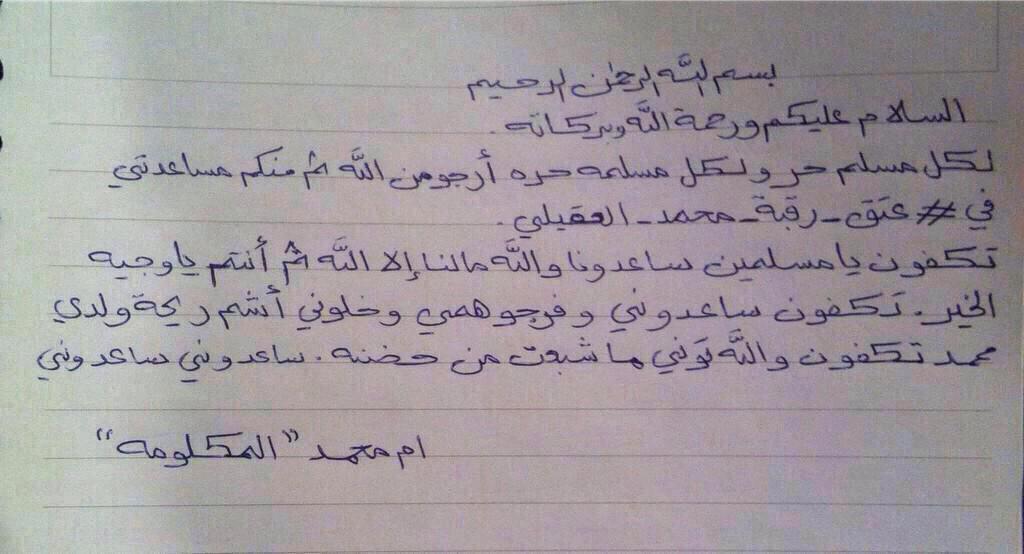 بسم الله الرحمن الرحيم
السلام عليكم ورحمة اللَّه وبركاته.
لكل مسلم حر ولكل مسلمه حره أرجو من اللَّه ثم منكم مساعدتي
في #عتق_رقبة_محمد_العقيلي.
تكفون يا مسلمين ساعدونا واللَّه مالنا إلا اللَّه ثم أنتم يا وجيه
الخير. تكفون ساعدوني وفرجو همي وخلوني أشم ريحة ولدي
محمد تكفون واللَّه توني ما شبعت من حضنه. ساعدوني ساعدوني
ام محمد "المكلومه"